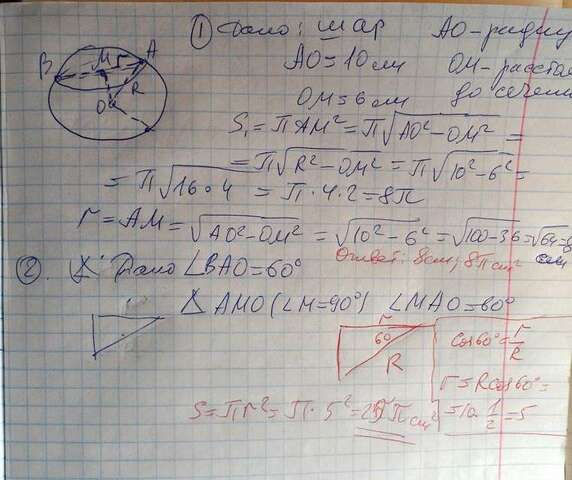 ① Дано: шар АО-радиу
АО=10см ОМ-расстоя
ОМ=6см до сечени
B M r A
O R
S₁=πAM²=π√AO²-OM² =
=π√R²-OM²=π√10²-6²=
=π√16·4 = π·4·2=8π
r=AM=√AO²-OM² =√10²-6² =√100-36=√64=8
Ответ: 8cm; 8πcm² см
② Дано ∠BAO=60°
△ AMO (∠M=90°) ∠MAO=60°
r
60 cos60°=r/R
R r=Rcos60°=
=10 1/2=5
S=πr²=π·5²=25πcm²